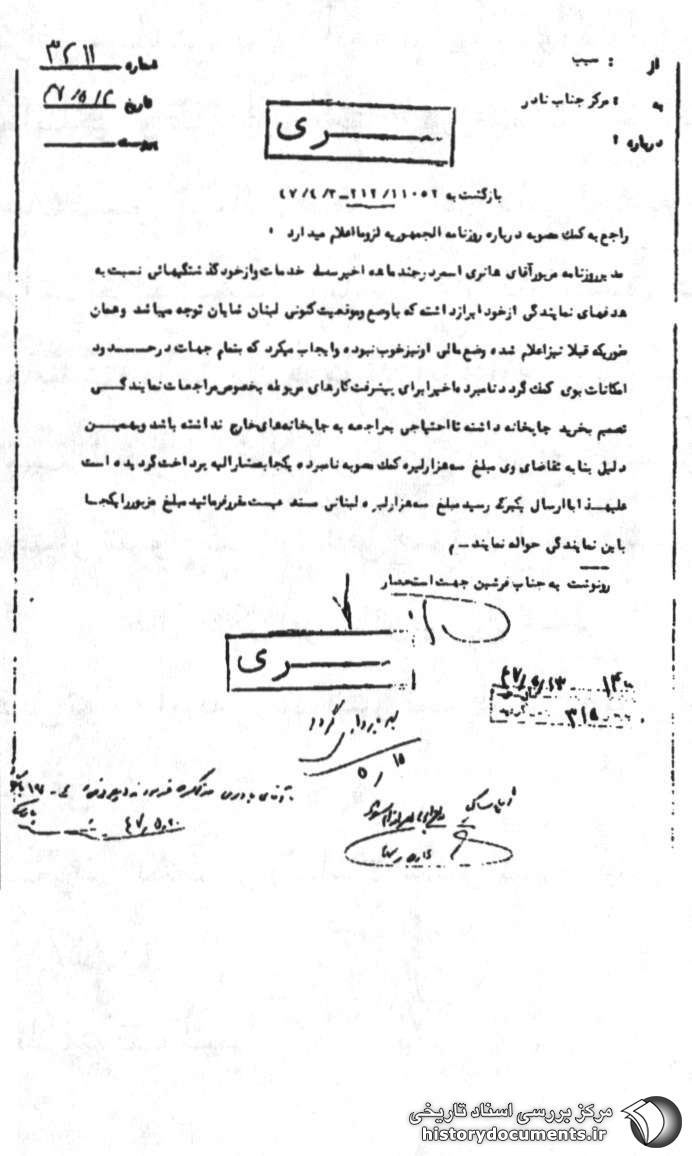 از : سیب
شماره ۳۲۱۱
به : مرکز جناب نادر
تاریخ ۴۷/۵/۲
درباره :
پیوست
سری
بازگشت به ۲۱۲/۱۱۰۵۲ - ۴۷/۴/۳
راجع به کمک مصوبه درباره روزنامه الجمهوریه لزوما اعلام میدارد :
مدیر روزنامه مزبور آقای هانری اسمر در چند ماهه اخیر خدمات و از خود گذشتگیهائی نسبت به
هدفهای نمایندگی از خود ابراز داشته که با وضع و موقعیت کنونی لبنان شایان توجه میباشد و همان
طوریکه قبلا نیز اعلام شده وضع مالی او نیز خوب نبوده و ایجاب میکرد که بتمام جهات در حدود
امکانات بوی کمک گردد نامبرده اخیرا برای پیشرفت کارهای مربوطه بخصوص مراجعات نمایندگی
تصمیم بخرید چاپخانه داشته تا احتیاجی بمراجعه به چاپخانه‌های خارج نداشته باشد و بهمین
دلیل بنا به تقاضای وی مبلغ سه هزار لیره کمک مصوبه نامبرده یکجا بمشارالیه پرداخت گردیده است
علیهذا با ارسال یکبرگ رسید مبلغ سه هزار لیره لبنانی مستدعیست مقرر فرمائید مبلغ مزبور را یکجا
باین نمایندگی حواله نمایند
رونوشت به جناب فرشین جهت استحضار
سری
۴۷/۵/۱۳
۳۱۵
گردد
۵/۱۵
آقای
۴۷/۵/۲۰
مرکز بررسی اسناد تاریخی
historydocuments.ir